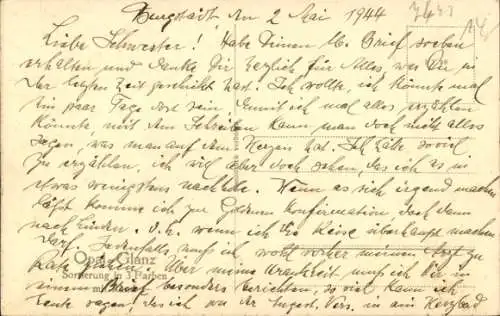 Burgstädt, den 2 Mai 1944
Liebe Schwester! Habe Deinen lb. Brief soeben
erhalten und danke Dir herzlich für Alles, was Du in
der letzten Zeit geschickt hast. Ich wollte, ich könnte mal
ein paar Tage dort sein damit ich mal alles erzählen
könnte, mit dem Schreiben kann man doch nicht alles
sagen, was man auf dem Herzen hat. Ich hätte so viel
zu erzählen, ich will aber doch sehen, das ich es in
etwas wenigstens nachhole. Wenn es sich irgend machen
läßt komme ich zu Goldenen Konfirmation, doch dann
nach Linden. V. h. wenn ich die Reise überhaupt machen
darf. Jedenfalls muß ich wohl vorher meinen Arzt zu
Rate ziehen. Über meine Krankheit muß ich Dir in
einem Brief besonders berichten, so viel kann ich
heute sagen, das ich von der Angest. Vers. in ein Herzbad
Opal-Glanz
Sortierung in 3 Farben